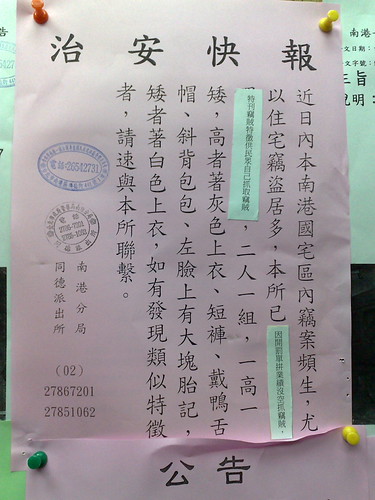 治安快報
近日內本南港國宅區內竊案頻生，尤
以住宅竊盜居多，本所已
因開罰單拼業績沒空抓竊賊，
特刊竊賊特徵供民眾自己抓取竊賊
，二人一組，一高一
矮，高者著灰色上衣、短褲、戴鴨舌
帽、斜背包包、左臉上有大塊胎記，
矮者著白色上衣，如有發現類似特徵
者，請速與本所聯繫。
電話:26542731
南港分局
同德派出所
(02)
27867201
27851062
公告
告
南港
文日期：
文字號：
主旨
說明：